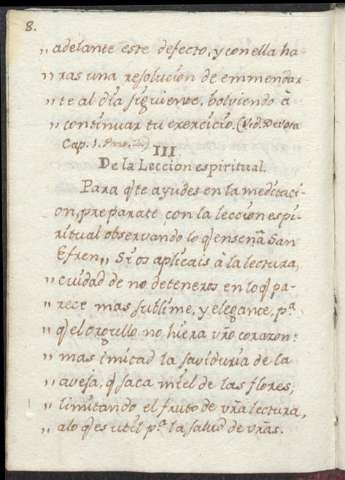 8.
„ adelante este defecto, y con ella ha-
„ ras una resolucion de emmendar-
„ te al dia siguiente, bolviendo à
„ continuar tu exercicio. (Vid. Devota
Cap. 1.
III
De la Leccion espiritual.
Para q̃ te ayudes en la meditaci-
on, preparate con la leccion espi-
ritual observando lo q̃ enseña San
Efren „ Si os aplicais à la lectura,
„ cuidad de no deteneros en lo q̃ pa-
„ rece mas sublime, y elegante, pª
„ q̃ el orgullo no hiera vr̃o corazon:
„ mas imitad la saviduria de la
„ aveja, q̃ saca miel de las flores,
„ limitando el fruto de vr̃a lectura,
„ a lo q̃ es util pª la salud de vr̃as.